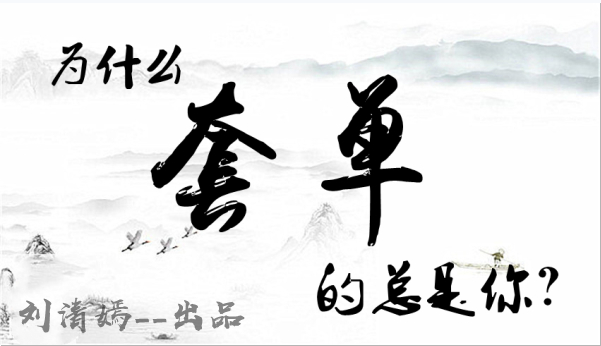 为什么
套单
的总是你?
刘清嫣--出品